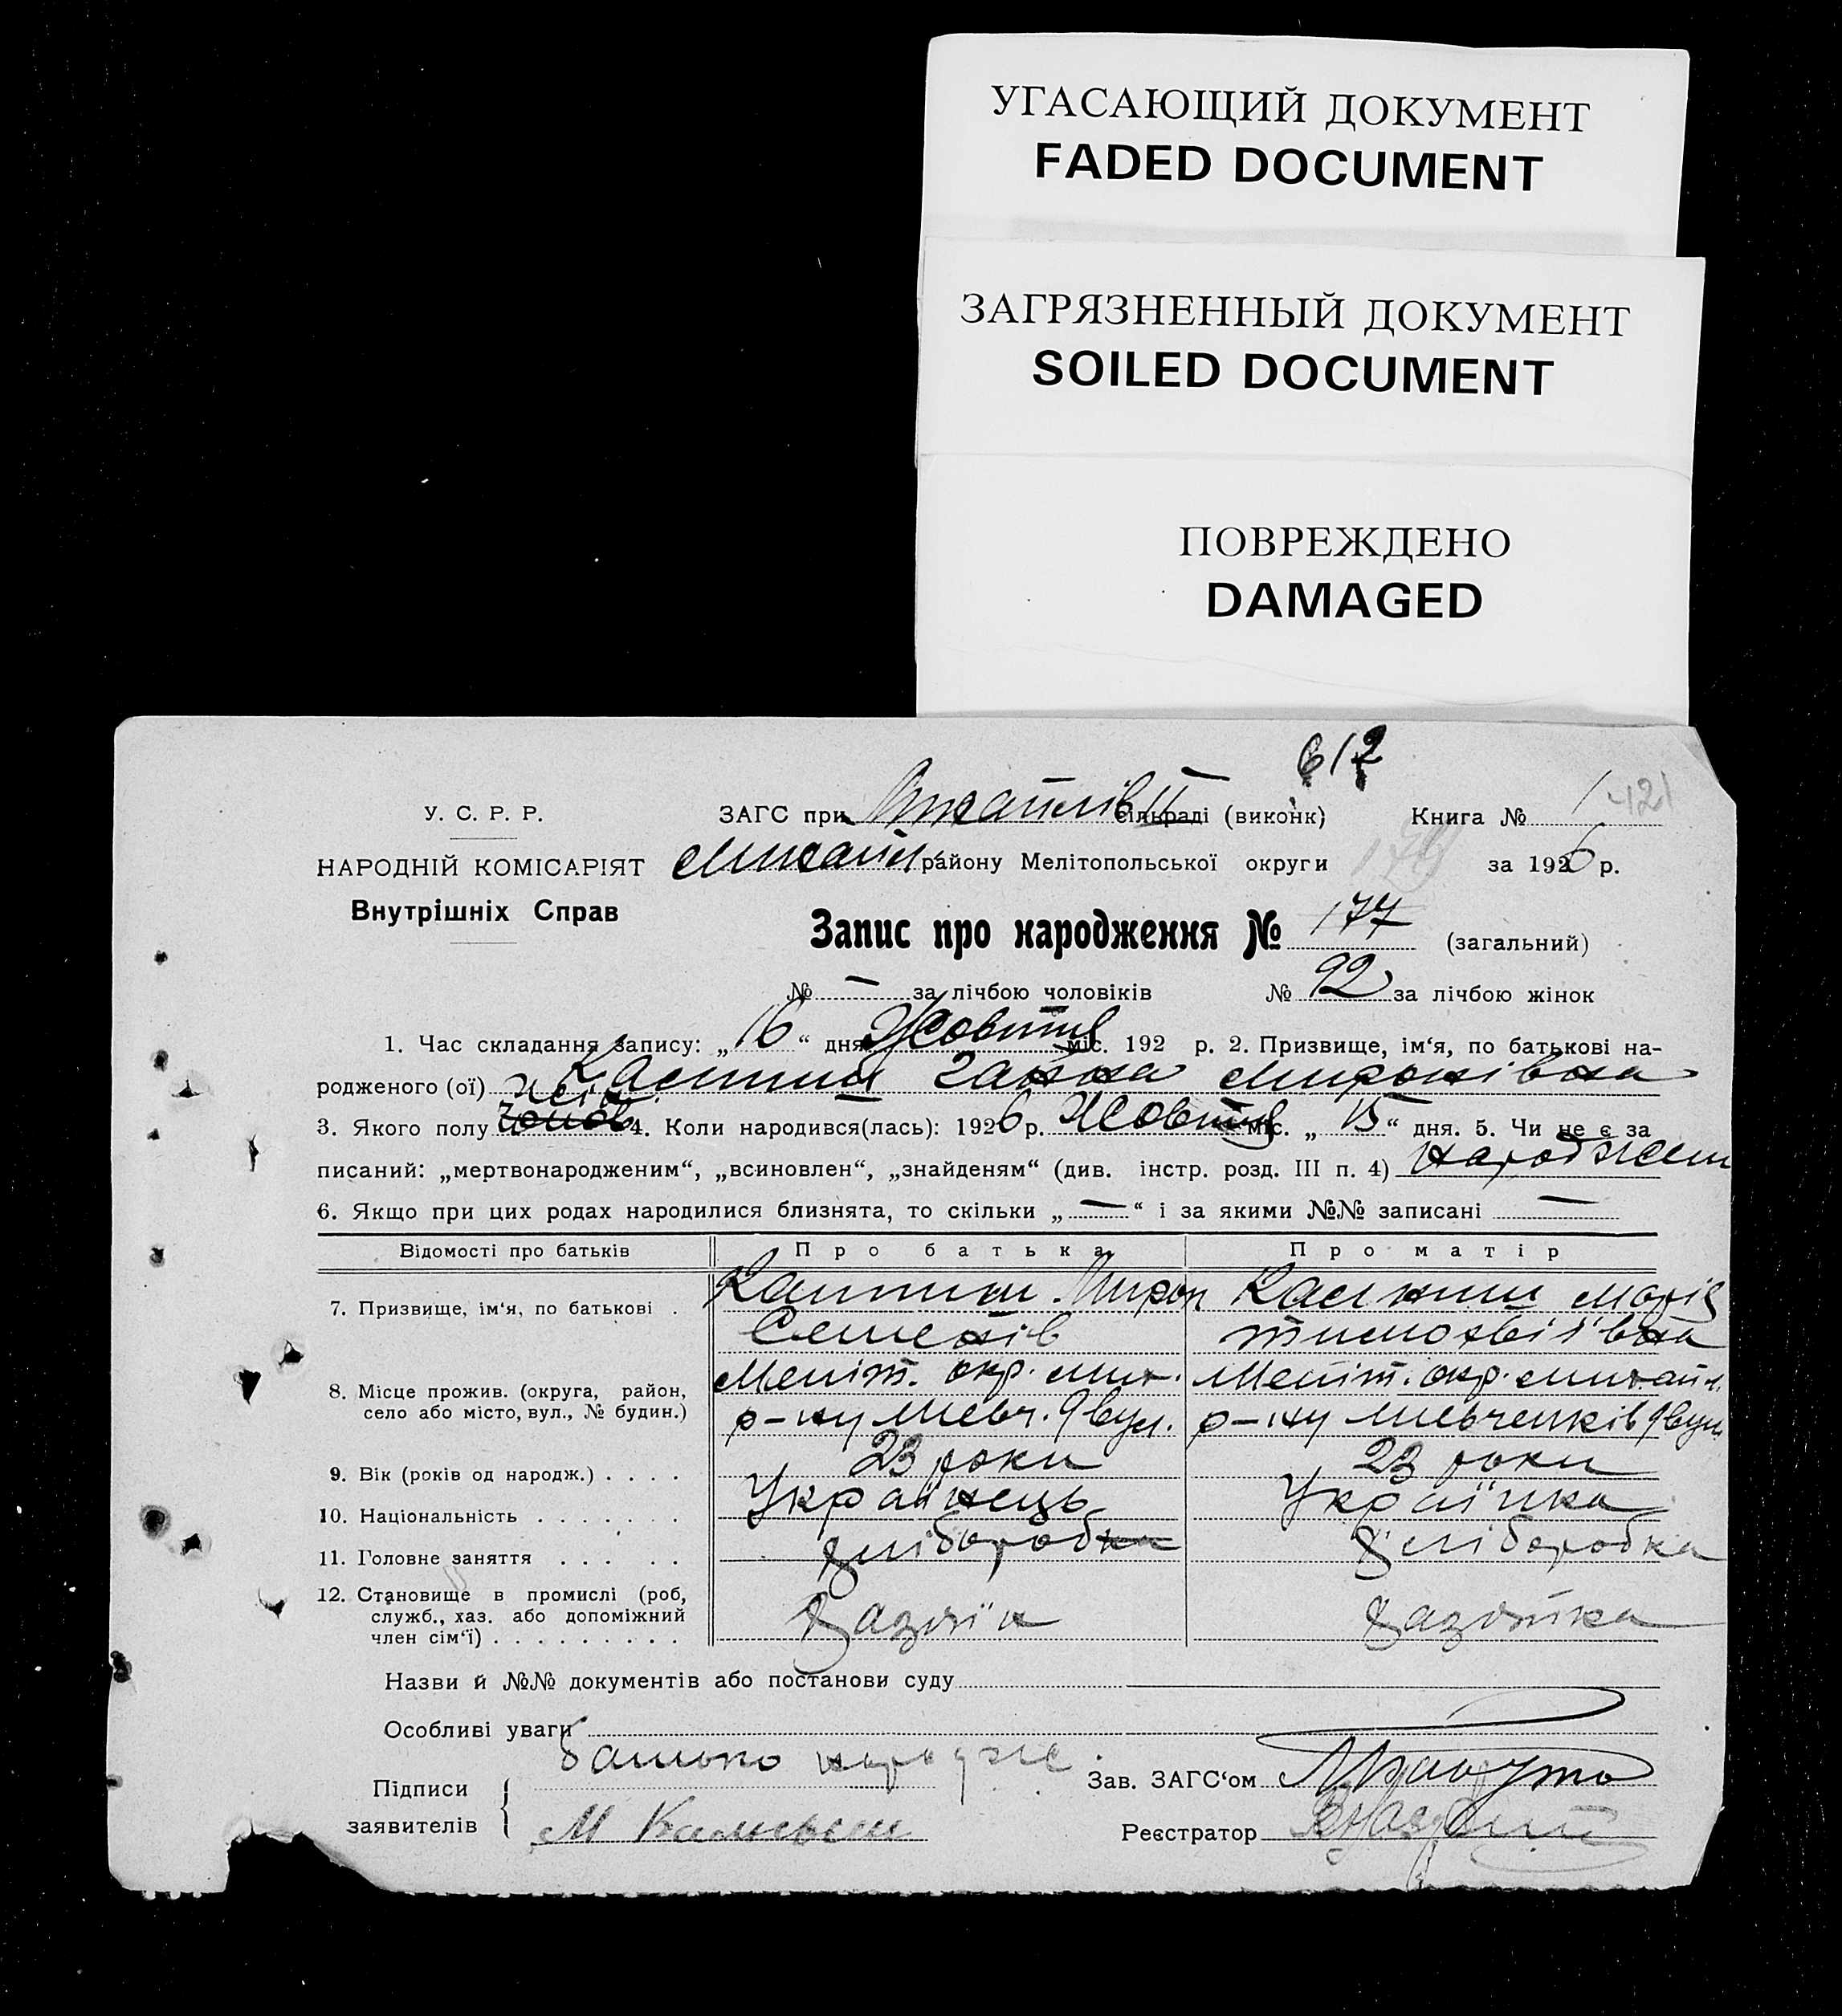 УГАСАЮЩИЙ ДОКУМЕНТ
FADED DOCUMENT
ЗАГРЯЗНЕННЫЙ ДОКУМЕНТ
SOILED DOCUMENT
ПОВРЕЖДЕНО
DAMAGED
612
У. С. Р. Р.
ЗАГС при Михайлів II сільраді (виконк)
Книга № 1 421
НАРОДНІЙ КОМІСАРІЯТ
Михайл. району Мелітопольської округи
за 1926 р.
Внутрішніх Справ
Запис про народження № 177 (загальний)
№ — за лічбою чоловіків № 92 за лічбою жінок
1. Час складання запису: „16“ дня Жовтня міс. 192 р. 2. Призвище, ім‘я, по батькові на-
родженого (ої) Ганна Миронівна
3. Якого полу жін. 4. Коли народився(лась): 1926 р. Жовтня міс. „15“ дня. 5. Чи не є за
писаний: „мертвонародженим“, „всиновлен“, „знайденям“ (див. інстр. розд. III п. 4) народжен
6. Якщо при цих родах народилися близнята, то скільки „—“ і за якими №№ записані —
Відомості про батьків Про батька Про матір
7. Призвище, ім‘я, по батькові . Мирон Марія
Семенів Тимофіївна
8. Місце прожив. (округа, район, Меліт. окр. Мих. Меліт. окр. Михайл.
село або місто, вул., № будин.) р-ну Шевч. 9 вул. р-ну Шевченків 9 вул.
9. Вік (років од народж.) . . . . 23 роки 23 роки
10. Національність . . . . . . . Українець Українка
11. Головне заняття . . . . . хліборобка хліборобка
12. Становище в промислі (роб,
служб., хаз. або допоміжний
член сім‘ї) . . . . . . . . . хазяїн хазяйка
Назви й №№ документів або постанови суду
Особливі уваги
Підписи батько Зав. ЗАГС‘ом
заявителів М Реєстратор